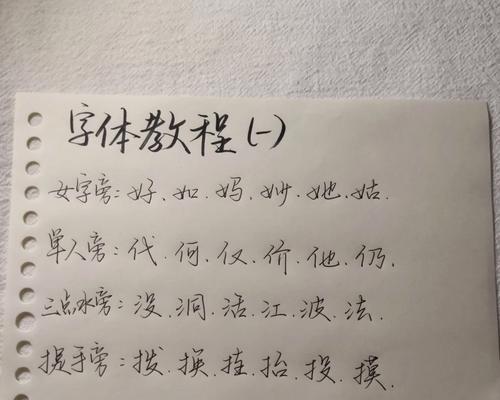 字体教程(一)
女字旁:好、如、妈、妙、她、姑.
单人旁:代、何、仅、价、他、仍、
三点水旁:没、洞、活、江、波、法、
提手旁:拨、换、挂、抬、投、摸、